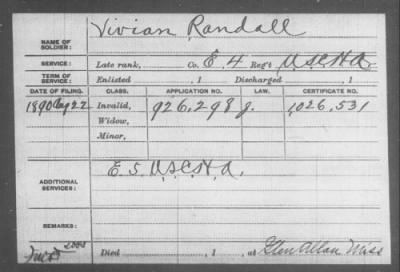 NAME OF SOLDIER: Vivian Randall
SERVICE: Late rank, Co. E. 4 Reg't U.S.C.H.A.
TERM OF SERVICE: Enlisted , 1 Discharged , 1
DATE OF FILING. CLASS. APPLICATION NO. LAW. CERTIFICATE NO.
1890 Aug 22 Invalid, 926,298 J. 1,026,531
Widow,
Minor,
ADDITIONAL SERVICES: E. 5. U.S.C.H.A.
REMARKS:
Died , 1 , at Glen Allan Miss